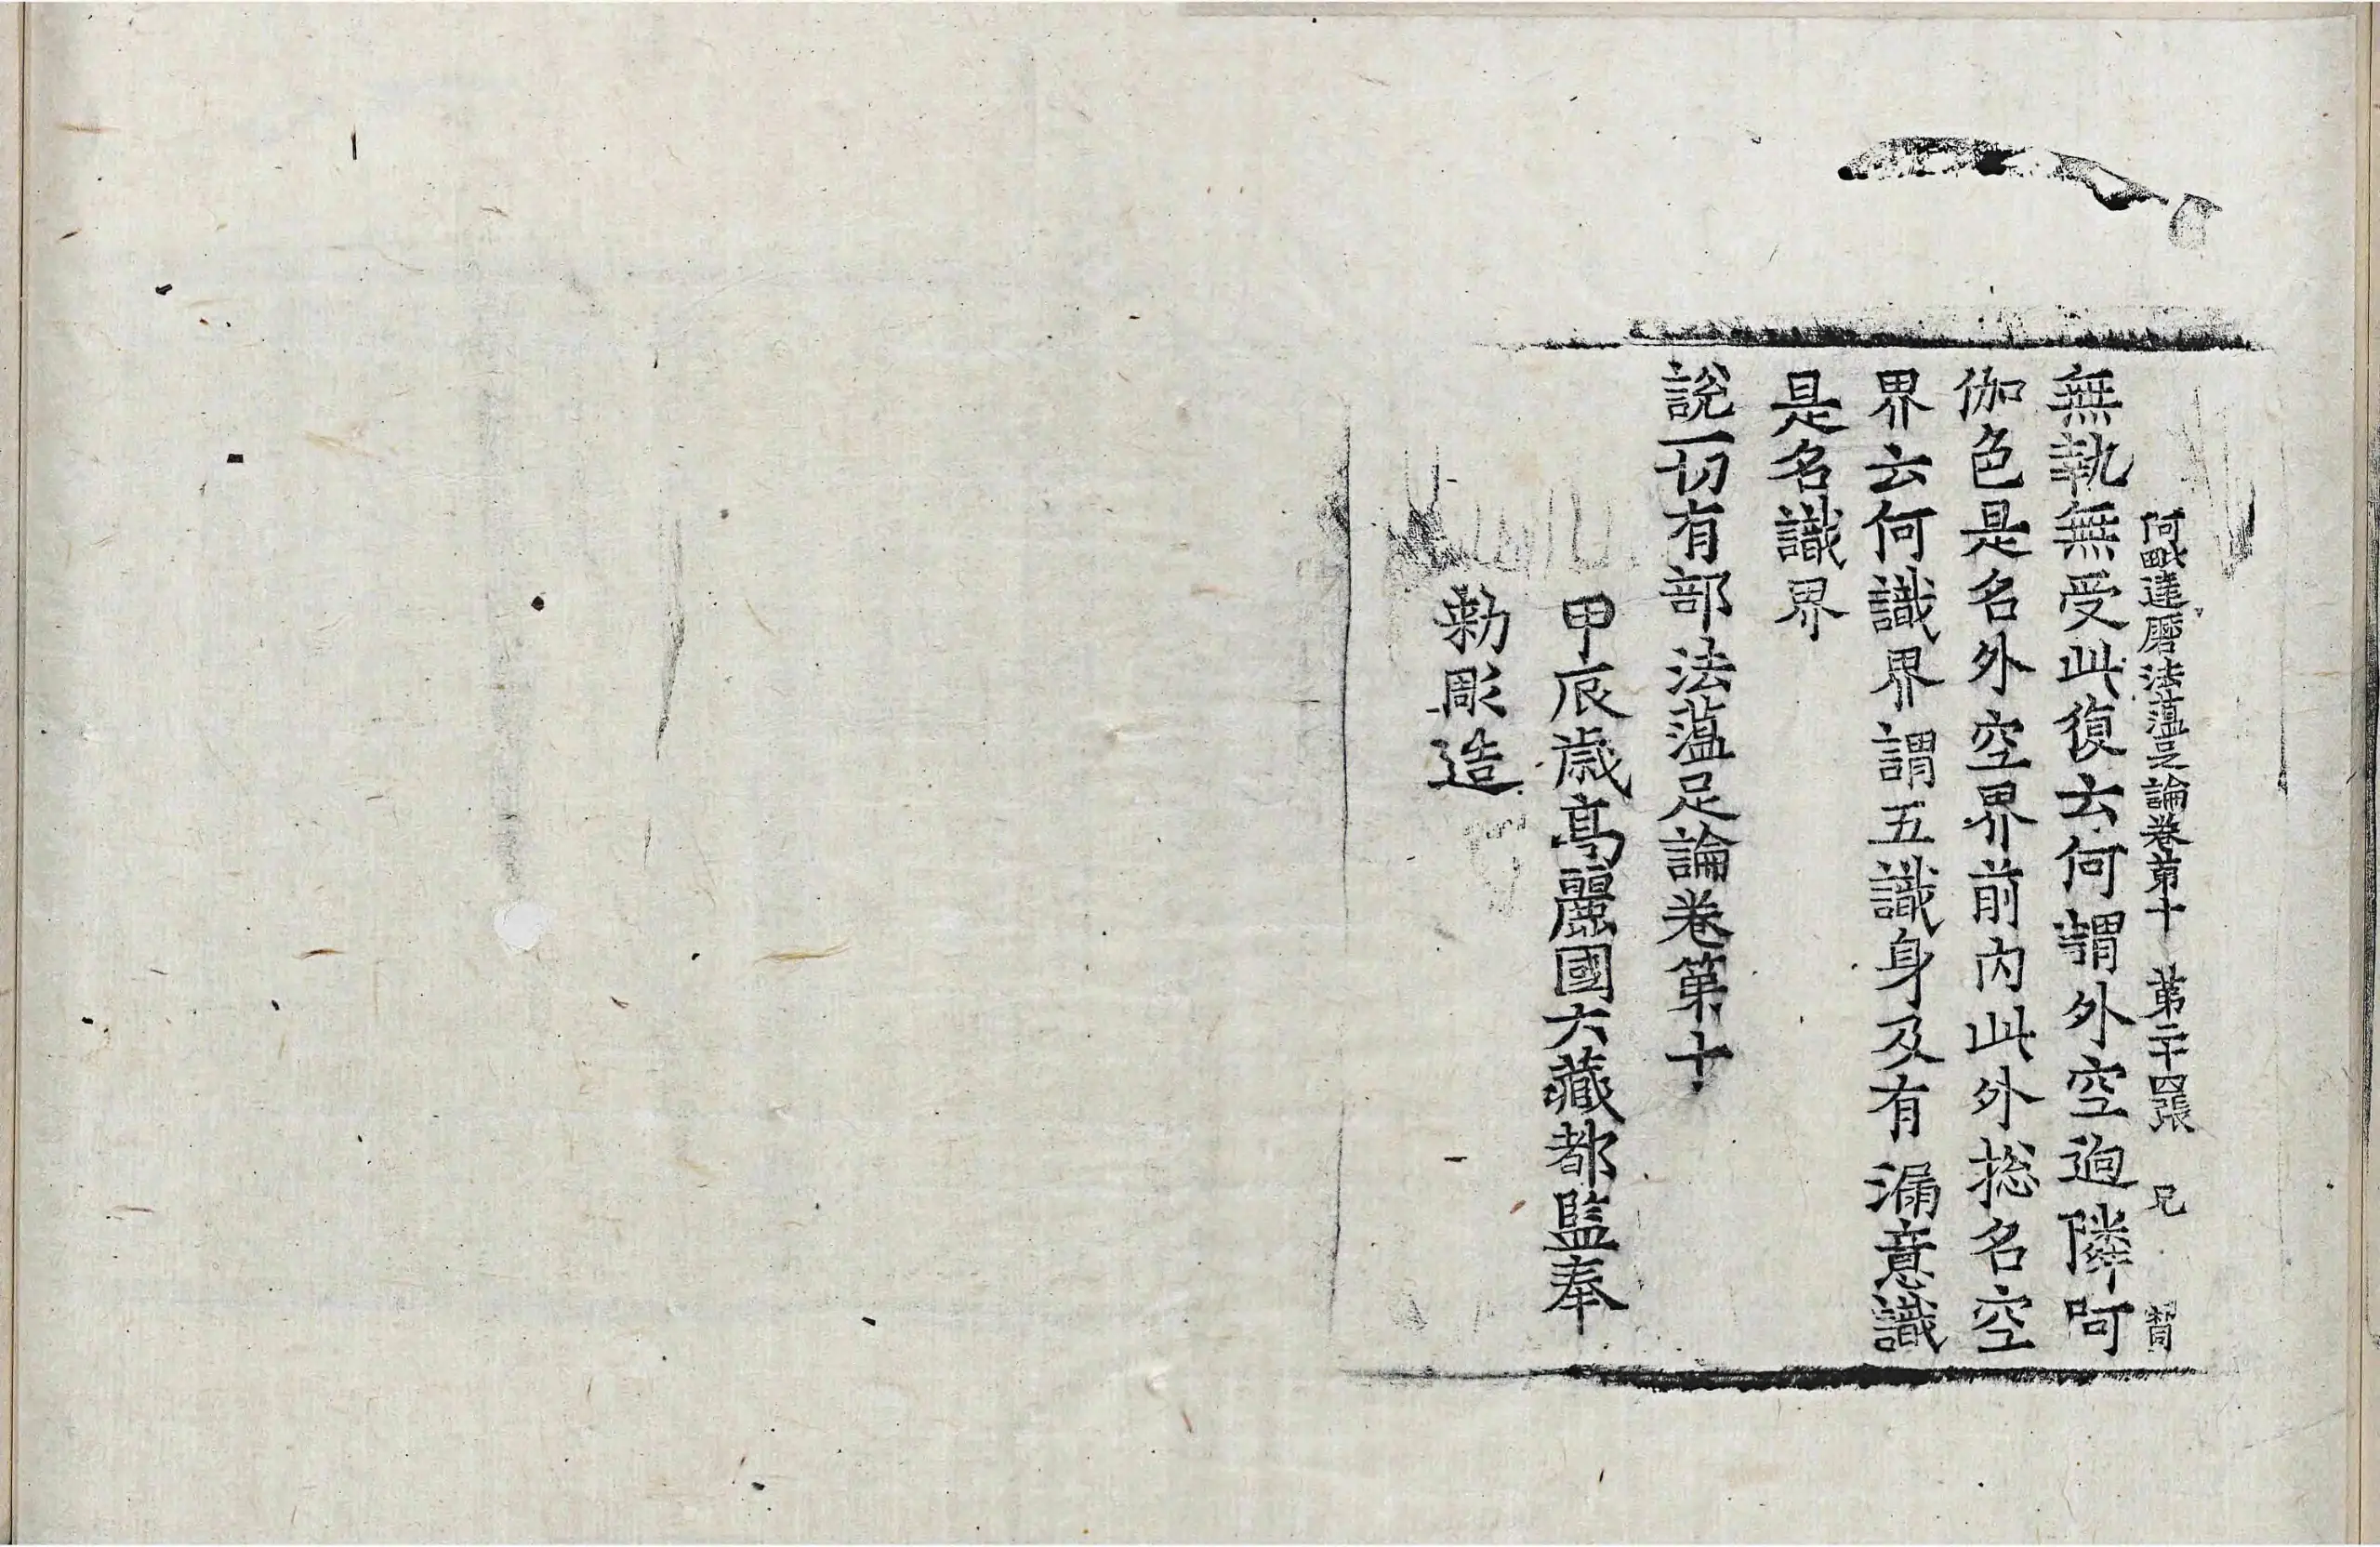 阿毗達磨法蕴足論卷第十 第二十四張 兄
無執無受此復云何謂外空逈隣阿
伽色是名外空界前內此外捴名空
界云何識界謂五識身及有漏意識
是名識界
說一切有部法蕴足論卷第十
甲辰歲高麗國大藏都監奉
勅彫造